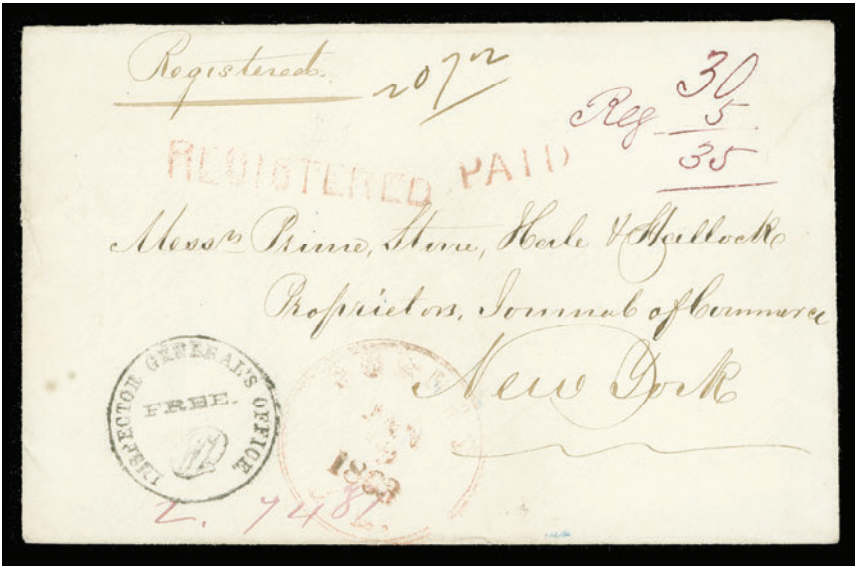 Registered.
207
30
Reg 5
35
REGISTERED PAID
Messrs Prime, Stone, Hale & Hallock
Proprietors, Journal of Commerce
New York
INSPECTOR GENERAL'S OFFICE
FREE.
JAN
1863
L. 7481